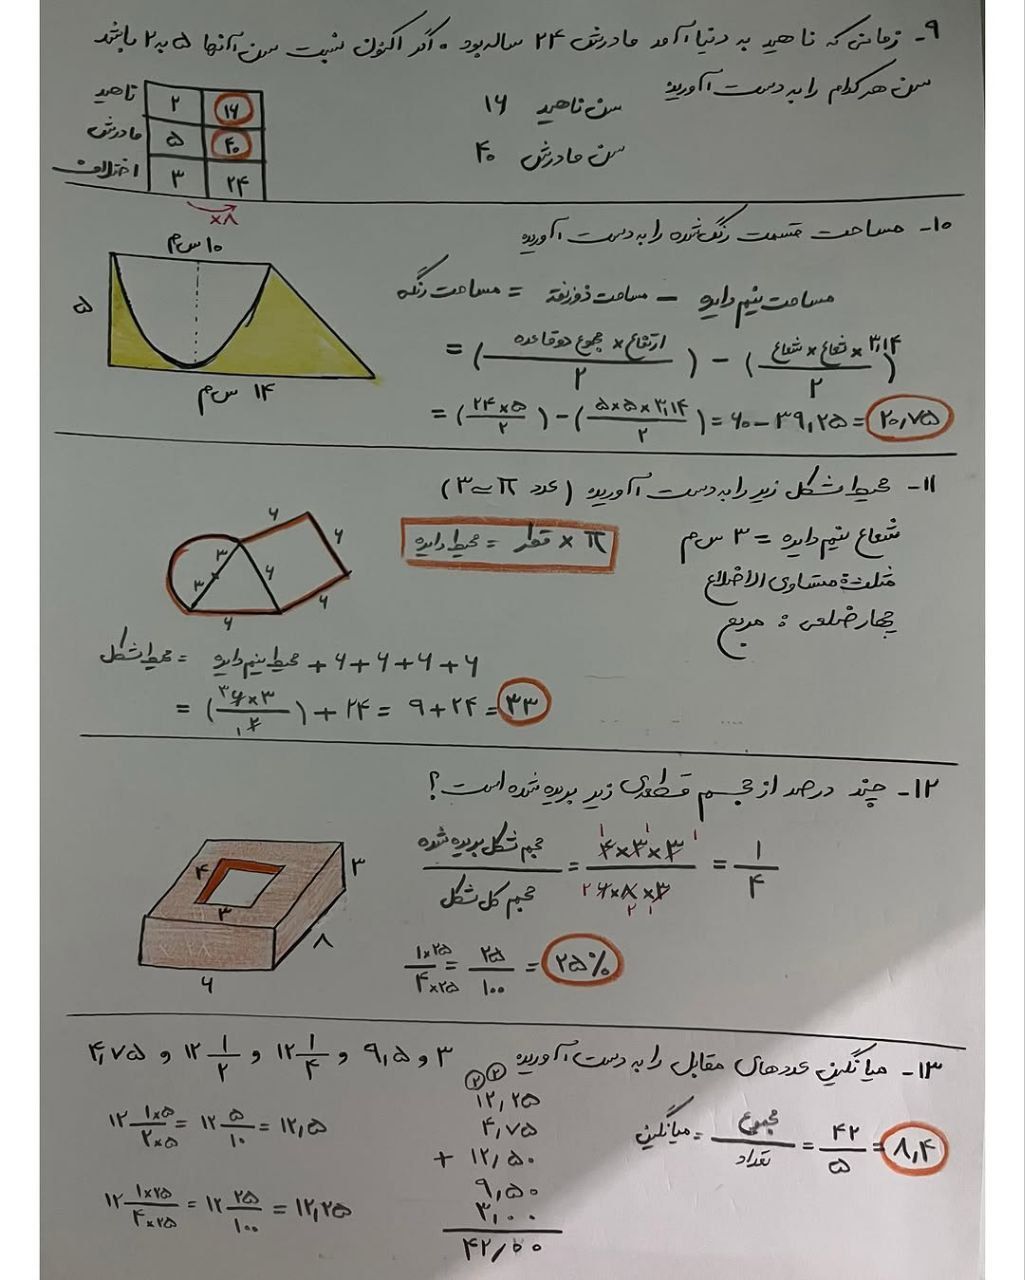 ۹- زمانی که ناهید به دنیا آمد مادرش ۲۴ ساله بود. اگر اکنون نسبت سن آنها ۵ به ۲ باشد
سن هر کدام را به دست آورید
سن ناهید ۱۶
سن مادرش ۴۰
ناهید ۲ ۱۶
مادرش ۵ ۴۰
اختلاف ۳ ۲۴
×۸
۱۰- مساحت قسمت رنگ شده را به دست آورید
۱۰ س م
۵
۱۴ س م
مساحت نیم دایره - مساحت ذوزنقه = مساحت رنگی
= (ارتفاع × مجموع دو قاعده / ۲) - (شعاع × شعاع × ۳٫۱۴ / ۲)
= (۲۴×۵ / ۲) - (۵×۵×۳٫۱۴ / ۲) = ۶۰ - ۳۹٫۲۵ = ۲۰٫۷۵
۱۱- محیط شکل زیر را به دست آورید (عدد π ≈ ۳)
شعاع نیم دایره = ۳ س م
مثلث متساوی الاضلاع
چهار ضلعی : مربع
π × قطر = محیط دایره
۶
۶
۶
۶
۶
۳
۳
محیط شکل = محیط نیم دایره + ۶ + ۶ + ۶ + ۶
= (۶×۳ / ۲) + ۲۴ = ۹ + ۲۴ = ۳۳
۱۲- چند درصد از حجم قطعه‌ی زیر بریده شده است؟
۴
۳
۳
۸
۶
حجم شکل بریده شده / حجم کل شکل = ۴×۳×۳ / ۶×۸×۳ = ۱ / ۴
۱×۲۵ / ۴×۲۵ = ۲۵ / ۱۰۰ = ۲۵%
۱۳- میانگین عددهای مقابل را به دست آورید ۳ و ۹٫۵ و ۱۲ ۱/۴ و ۱۲ ۱/۲ و ۴٫۷۵
۱۲ ۱×۵ / ۲×۵ = ۱۲ ۵/۱۰ = ۱۲٫۵
۱۲ ۱×۲۵ / ۴×۲۵ = ۱۲ ۲۵/۱۰۰ = ۱۲٫۲۵
۲ ۲
۱۲٫۲۵
۴٫۷۵
+ ۱۲٫۵۰
۹٫۵۰
۳٫۰۰
۴۲٫۰۰
میانگین = مجموع / تعداد = ۴۲ / ۵ = ۸٫۴